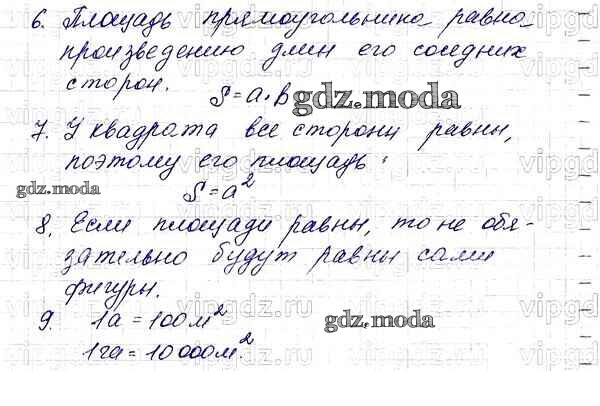 6. Площадь прямоугольника равна
произведению длин его соседних
сторон.
S = a · b gdz.moda
7. У квадрата все стороны равны,
поэтому его площадь:
gdz.moda
S = a²
8. Если площади равны, то не обя-
зательно будут равны сами
фигуры.
9. 1а = 100 м²
gdz.moda
1га = 10 000 м².